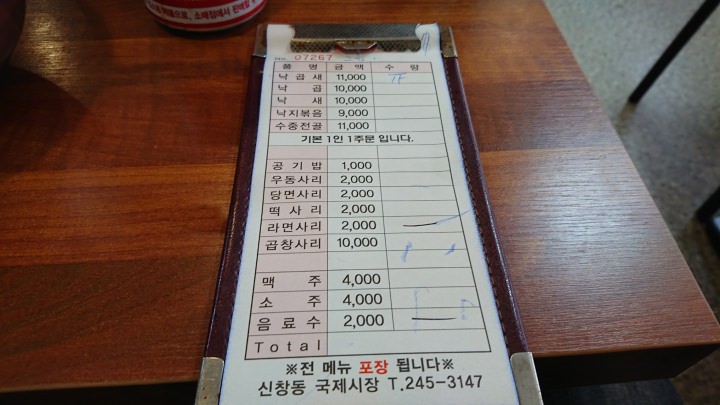 No. 07267
품 명 금 액 수 량
낙 곱 새 11,000
낙 곱 10,000
낙 새 10,000
낙지볶음 9,000
수중전골 11,000
기본 1인 1주문 입니다.
공 기 밥 1,000
우동사리 2,000
당면사리 2,000
떡 사 리 2,000
라면사리 2,000
곱창사리 10,000
맥 주 4,000
소 주 4,000
음 료 수 2,000
Total
※전 메뉴 포장 됩니다※
신창동 국제시장 T.245-3147